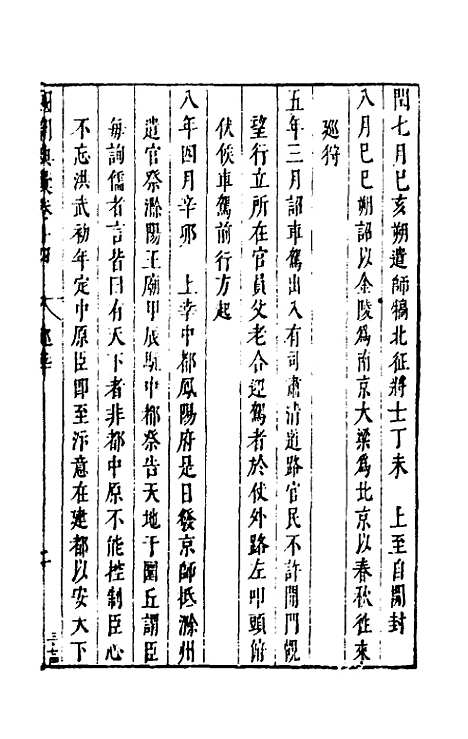 閏七月己亥朔遣師犒北征將士丁未　上至自開封
八月己巳朔詔以金陵爲南京大梁爲北京以春秋徃來
廵狩
五年三月詔車駕出入有司肅清道路官民不許開門觀
望行立所在官員父老合迎駕者於仗外路左叩頭俯
伏候車駕前行方起
八年四月辛卯　上幸中都鳳陽府是日發京師抵滁州
遣官祭滁陽王廟甲辰馭中都祭告天地于圜丘謂臣
每詢儒者言皆曰有天下者非都中原不能控制臣心
不忘洪武初年定中原臣即至汴意在建都以安天下
國朝典彙卷十四